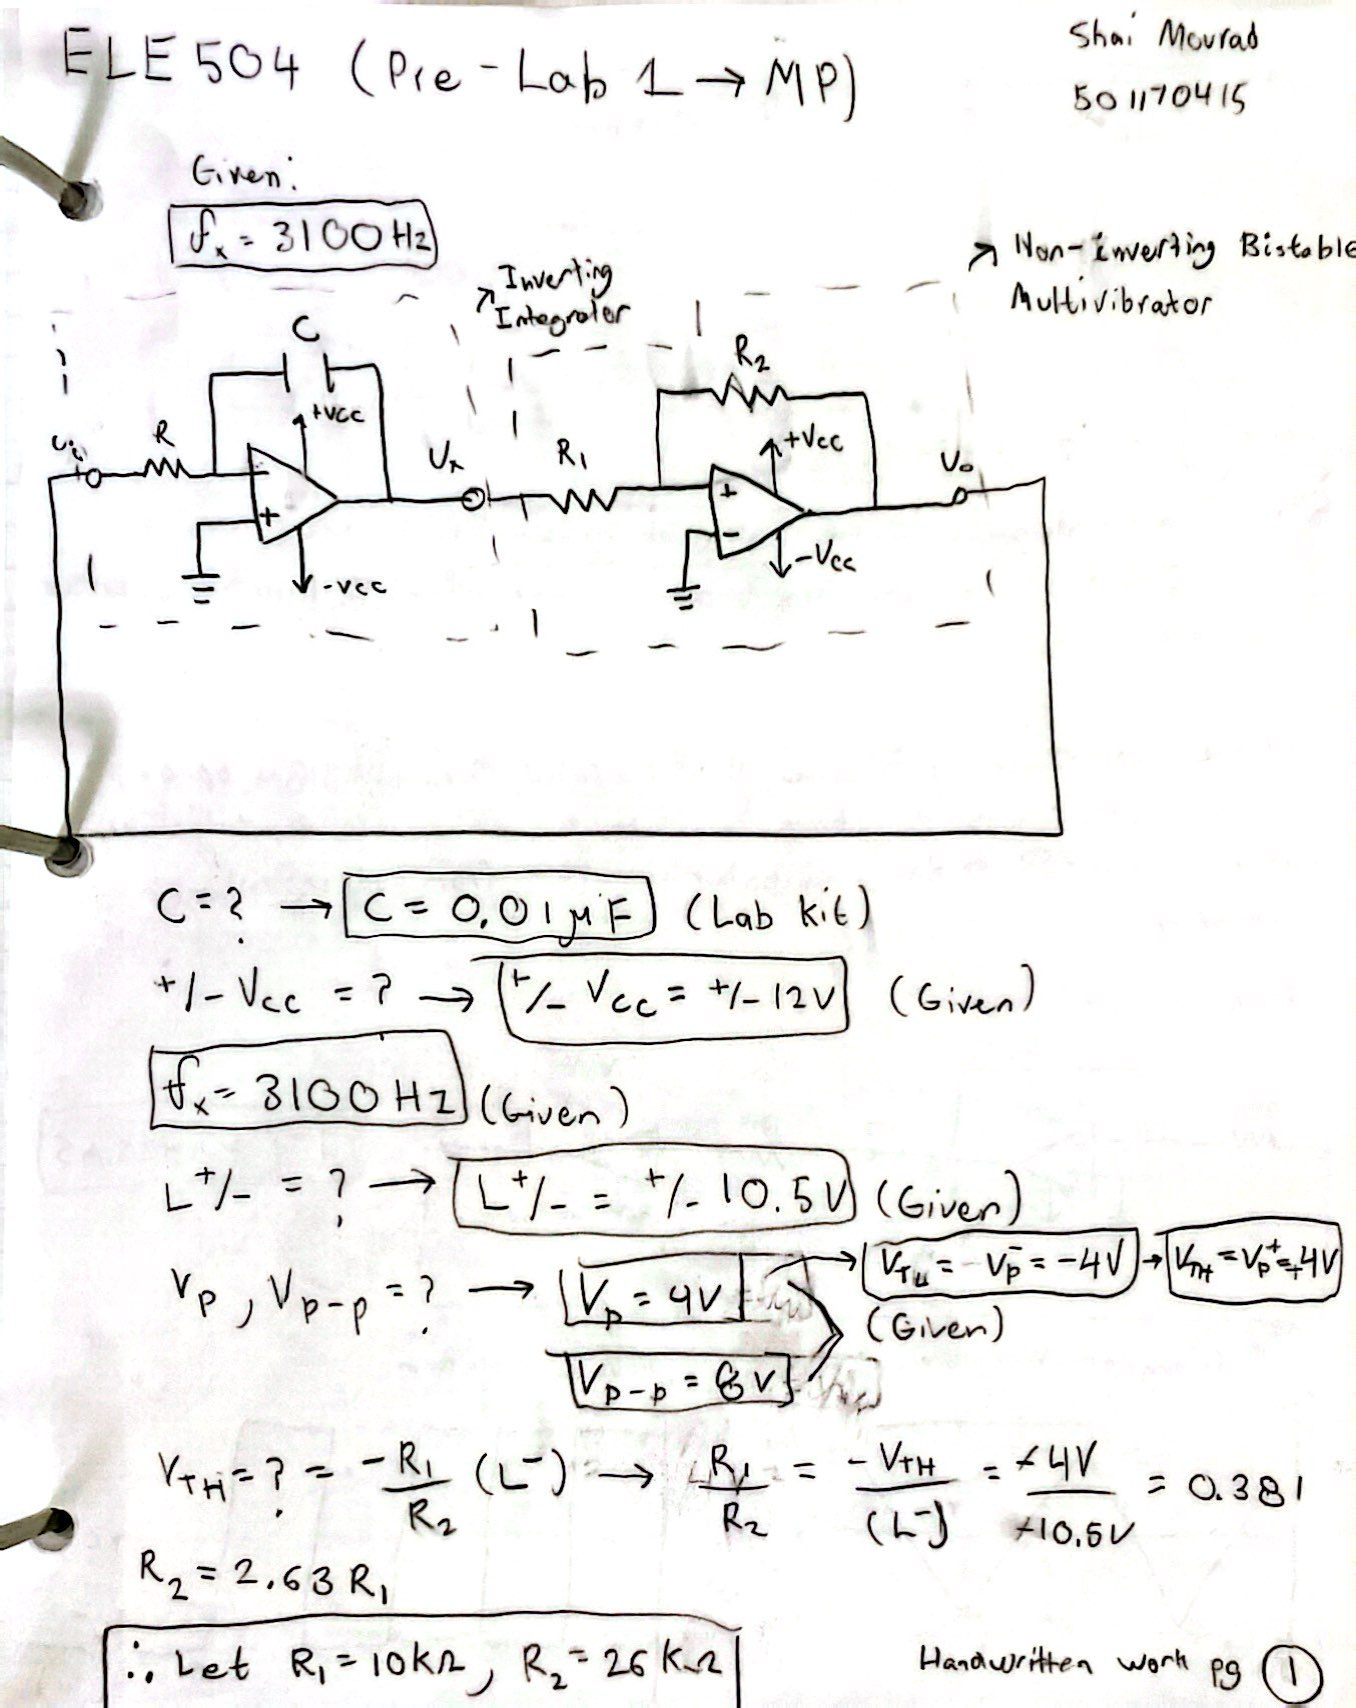 ELE 504 (Pre-Lab 1 → MP)
Shai Mourad
501170415
Given:
fx = 3100 Hz
↗ Inverting
Integrator
↗ Non-inverting Bistable
Multivibrator
C
R2
+Vcc
+Vcc
R
Vx
R1
Vo
-
+
+
-
-Vcc
-Vcc
C = ? → C = 0.01 μF (Lab kit)
+/- Vcc = ? → +/- Vcc = +/- 12V (Given)
fx = 3100 Hz (Given)
L+/- = ? → L+/- = +/- 10.5V (Given)
Vp, Vp-p = ? → Vp = 4V → VTL = -Vp- = -4V → VTH = Vp+ = +4V
(Given)
Vp-p = 8V
VTH = ? = -R1/R2 (L-) → R1/R2 = -VTH/(L-) = -4V/-10.5V = 0.381
R2 = 2.63 R1
∴ Let R1 = 10kΩ, R2 = 26kΩ
Handwritten work pg 1